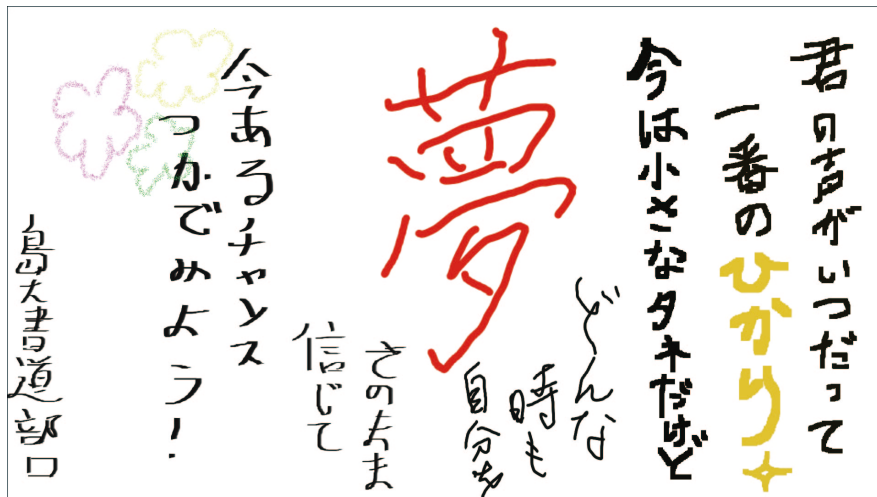 君の声がいつだって
一番のひかり
今は小さなタネだけど
夢
どんな
時も
自分を
そのまま
信じて
今あるチャンス
つかでみよう!
島大書道部